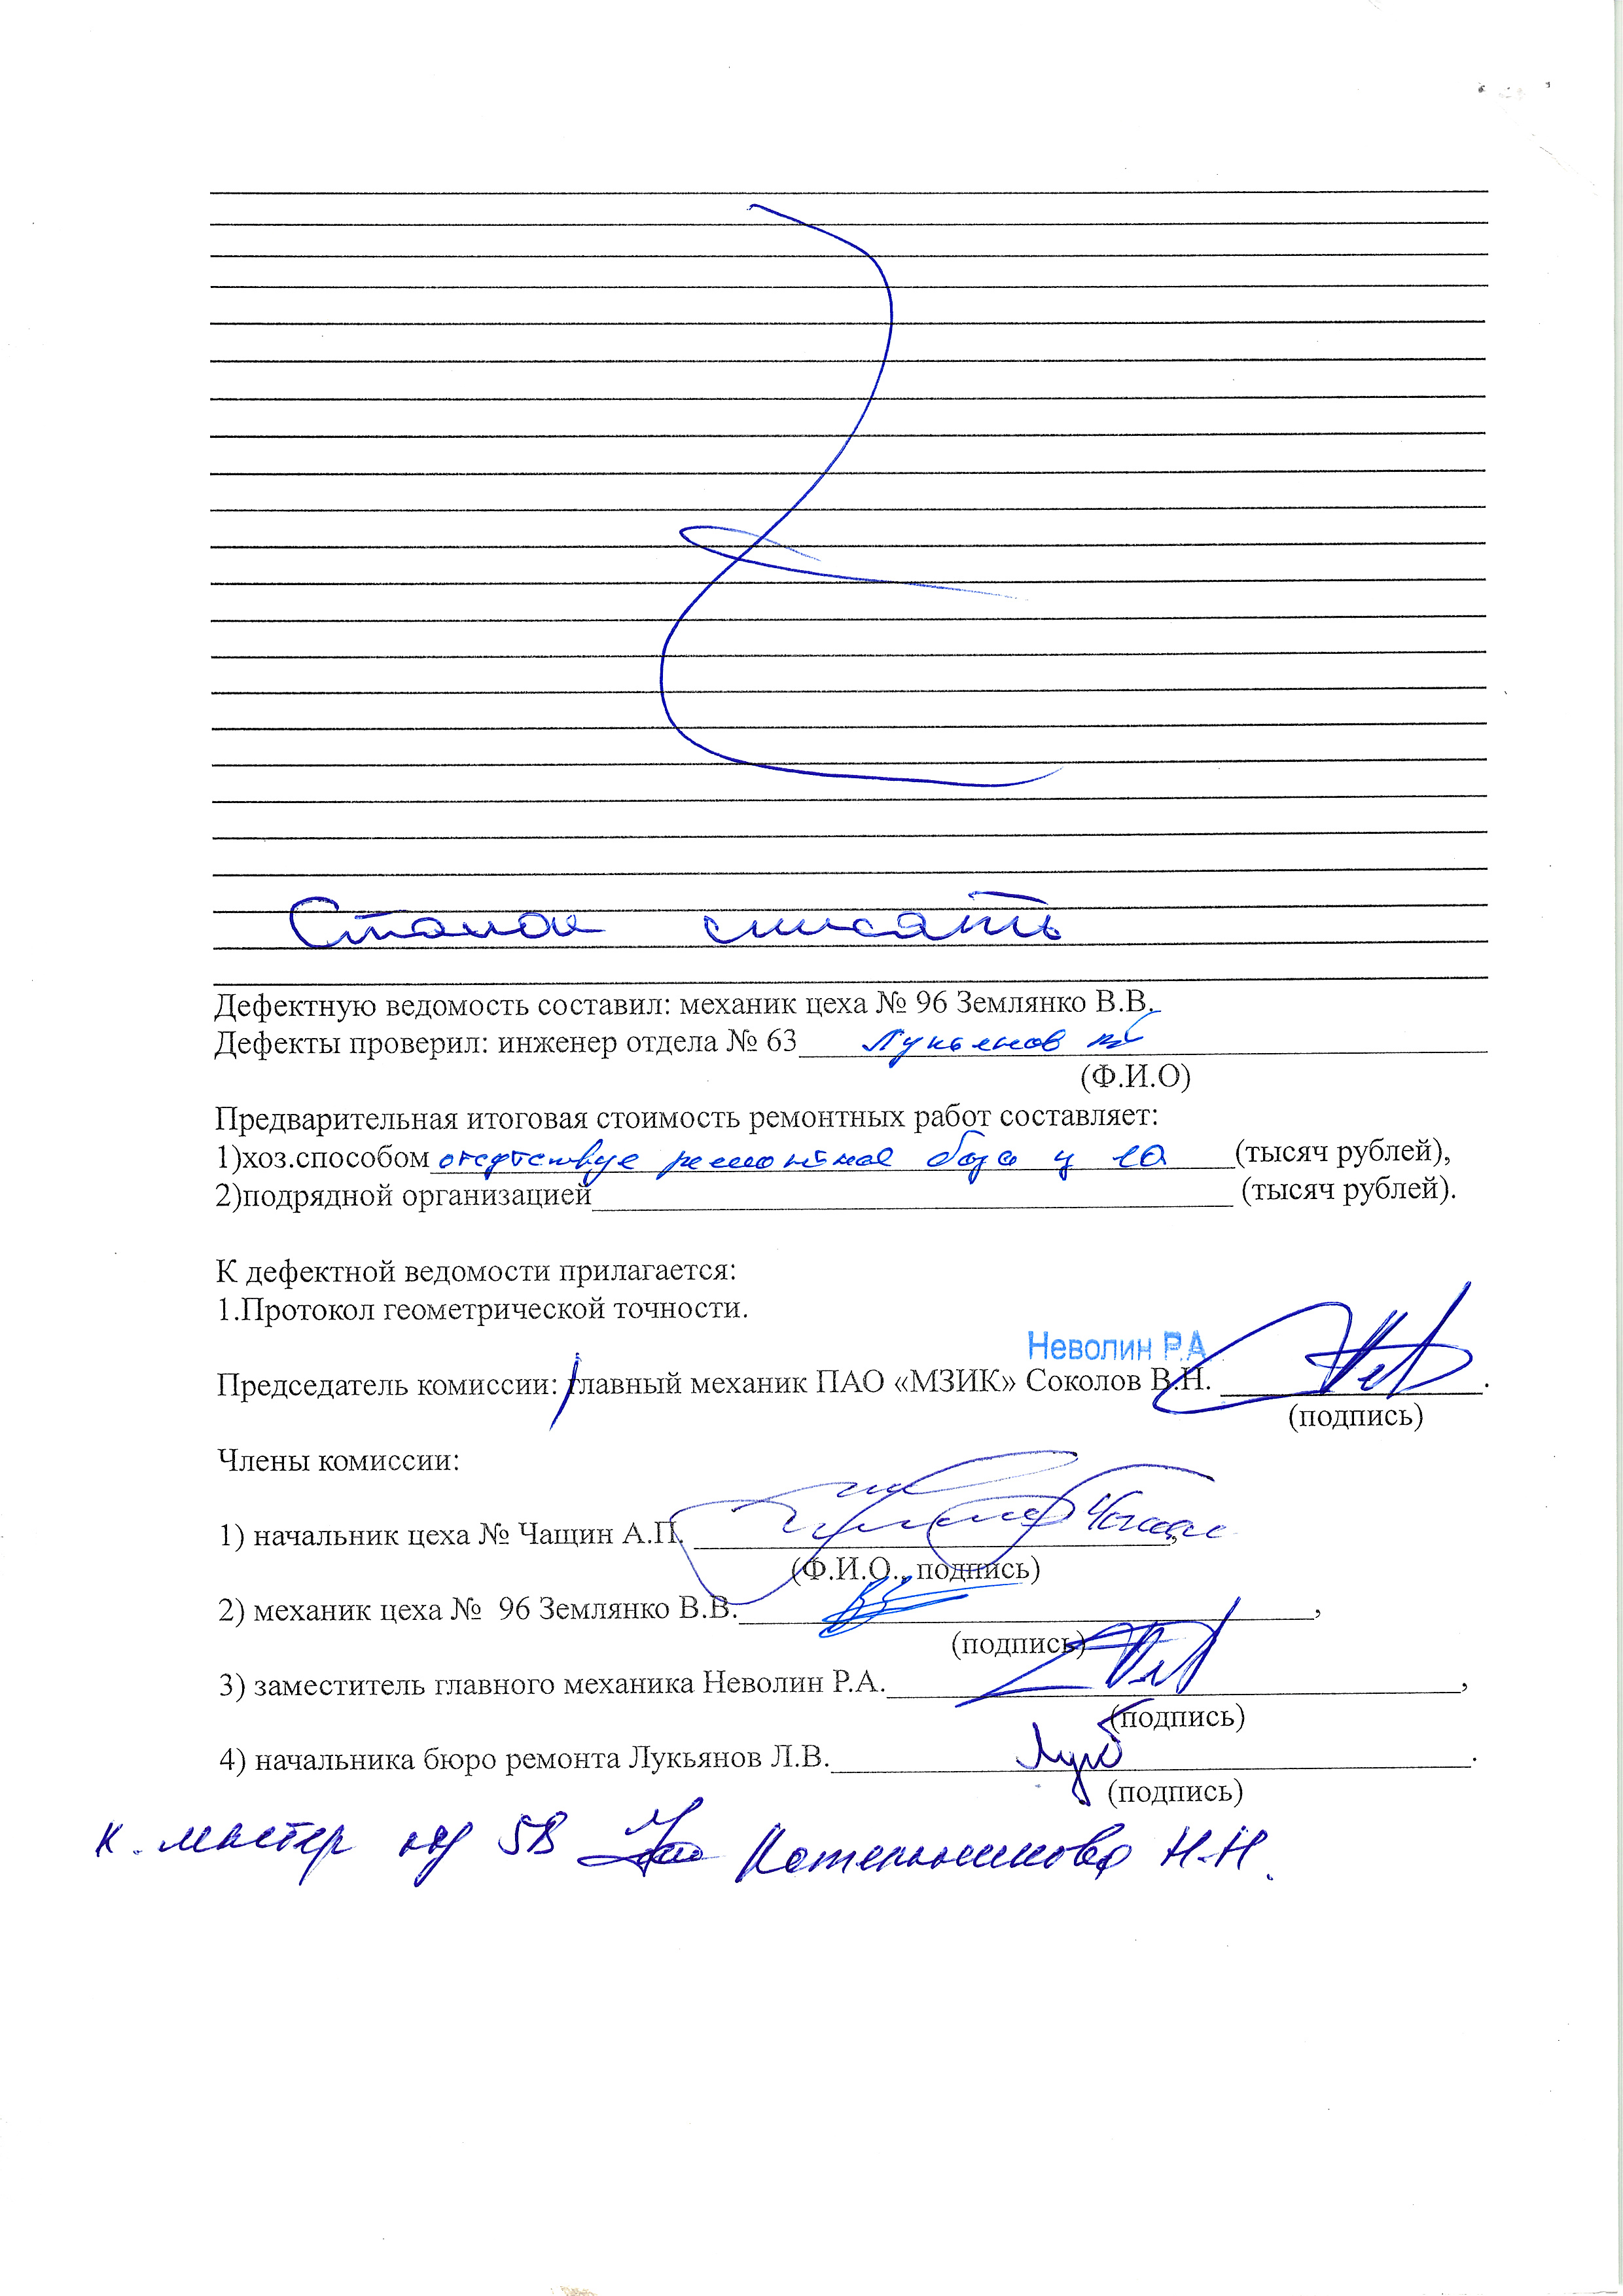 Станок списать
Дефектную ведомость составил: механик цеха № 96 Землянко В.В.
Дефекты проверил: инженер отдела № 63 Лукьянов
(Ф.И.О)
Предварительная итоговая стоимость ремонтных работ составляет:
1)хоз.способом отсутствуе ремонтная база у (тысяч рублей),
2)подрядной организацией (тысяч рублей).
К дефектной ведомости прилагается:
1.Протокол геометрической точности.
Неволин Р.А
Председатель комиссии: главный механик ПАО «МЗИК» Соколов В.Н. .
(подпись)
Члены комиссии:
1) начальник цеха № Чащин А.П. ,
(Ф.И.О., подпись)
2) механик цеха № 96 Землянко В.В. ,
(подпись)
3) заместитель главного механика Неволин Р.А. ,
(подпись)
4) начальника бюро ремонта Лукьянов Л.В. .
(подпись)
мастер Котельникова Н.Н.